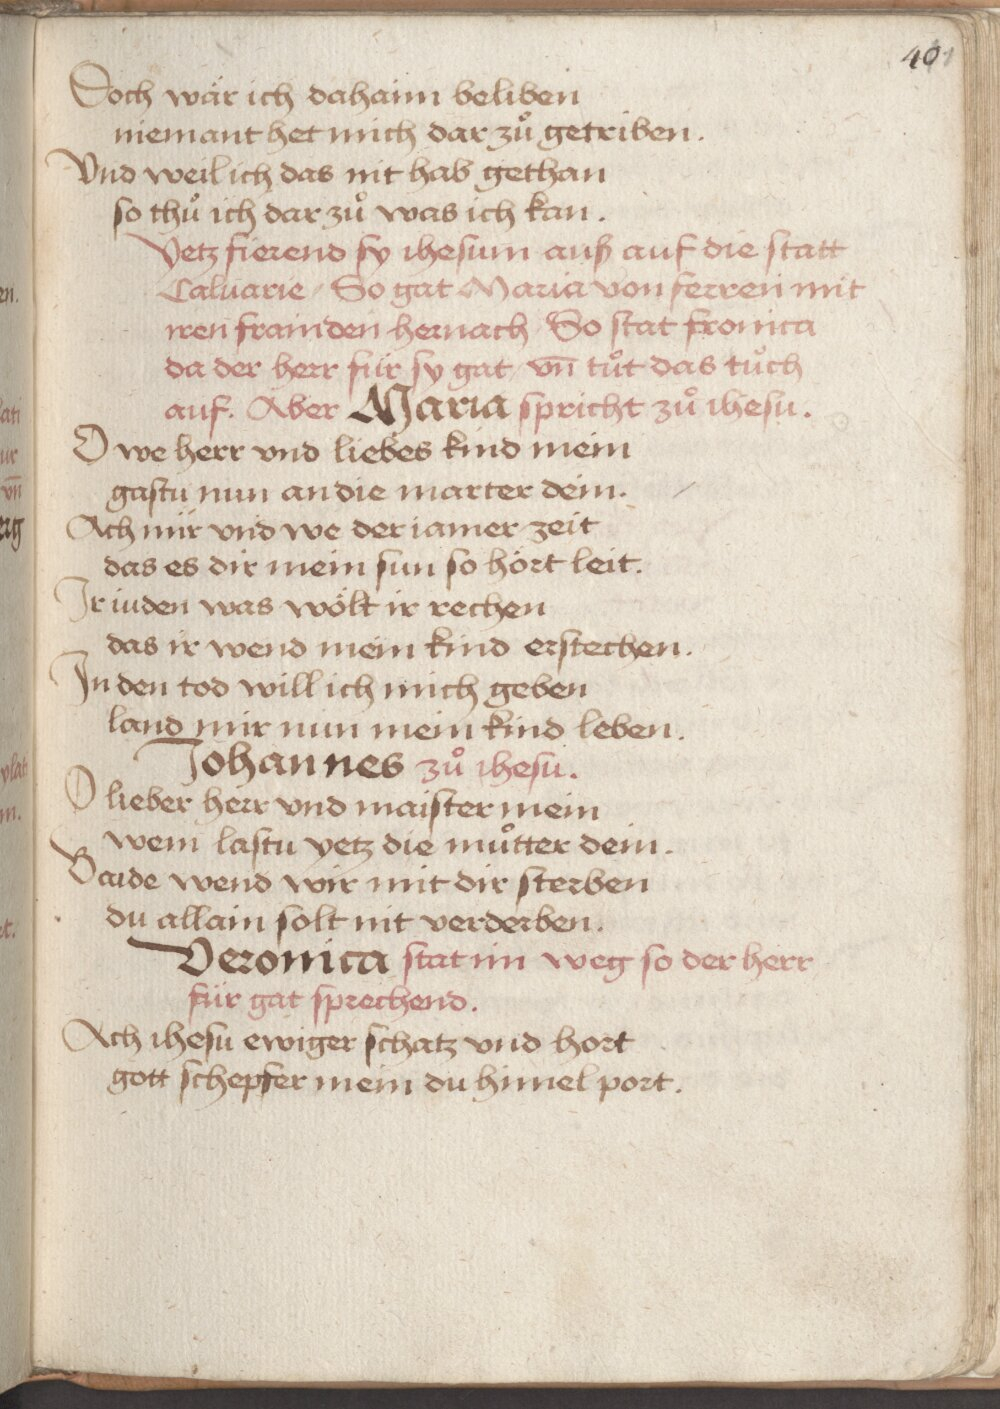 40
Doch wär ich dahaim beliben
niemant het mich dar zů getriben.
Vnd weil ich das nit hab gethan
so thů ich dar zů was ich kan.
Yetz fierend sy ihesum auß auf die statt
Caluarie / So gat Maria von ferren mit
iren frainden hernach / So stat fronica
da der herr für sy gat / vn̄ tůt das tůch
auf. Aber Maria spricht zů ihesu.
O we herr vnd liebes kind mein
gastu nun an die marter dein.
Ach mir vnd we der iamer zeit
das es dir mein sun so hört leit.
Ir iuden was wölt ir rechen
das ir wend mein kind erstechen.
In den tod will ich mich geben
land mir nun mein kind leben.
Johannes zů ihesu.
O lieber herr vnd maister mein
wem lastu yetz die můtter dein.
Baide wend wir mit dir sterben
du allain solt nit verderben.
Veronica stat im weg so der herr
für gat sprechend.
Ach ihesu ewiger schatz vnd hort
gott schepfer mein du himel port.